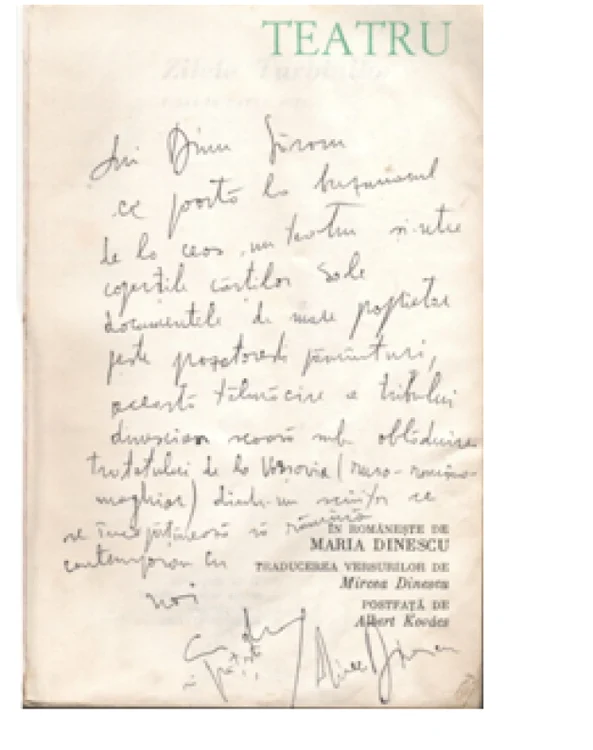 TEATRU
Lui Dinu Săraru
ce poartă la buzunarul
de la ceas un teatru și-ntre
coperțile cărților sale
documentele de mare proprietar
peste prozatorești pământuri,
această tălmăcire a tribului
dinescian sub oblăduirea
tratatului de la Varșovia (ruso-româno-
maghiar) dintr-un scriitor ce
se încăpățânează să rămână
contemporan cu
noi
ÎN ROMÂNEȘTE DE
MARIA DINESCU
TRADUCEREA VERSURILOR DE
Mircea Dinescu
POSTFAȚĂ DE
Albert Kovács
Cu
Mircea Dinescu